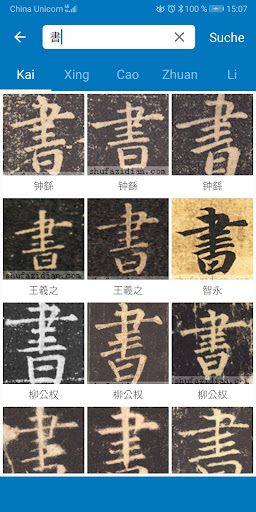 China Unicom 46 100 % 15:07
書 Suche
Kai Xing Cao Zhuan Li
書 書 書
shufazidian.com shufazidian.com
钟繇 钟繇 钟繇
書 書 書
王羲之 王羲之 智永
書 書 書
柳公权 柳公权 柳公权
書 書 書